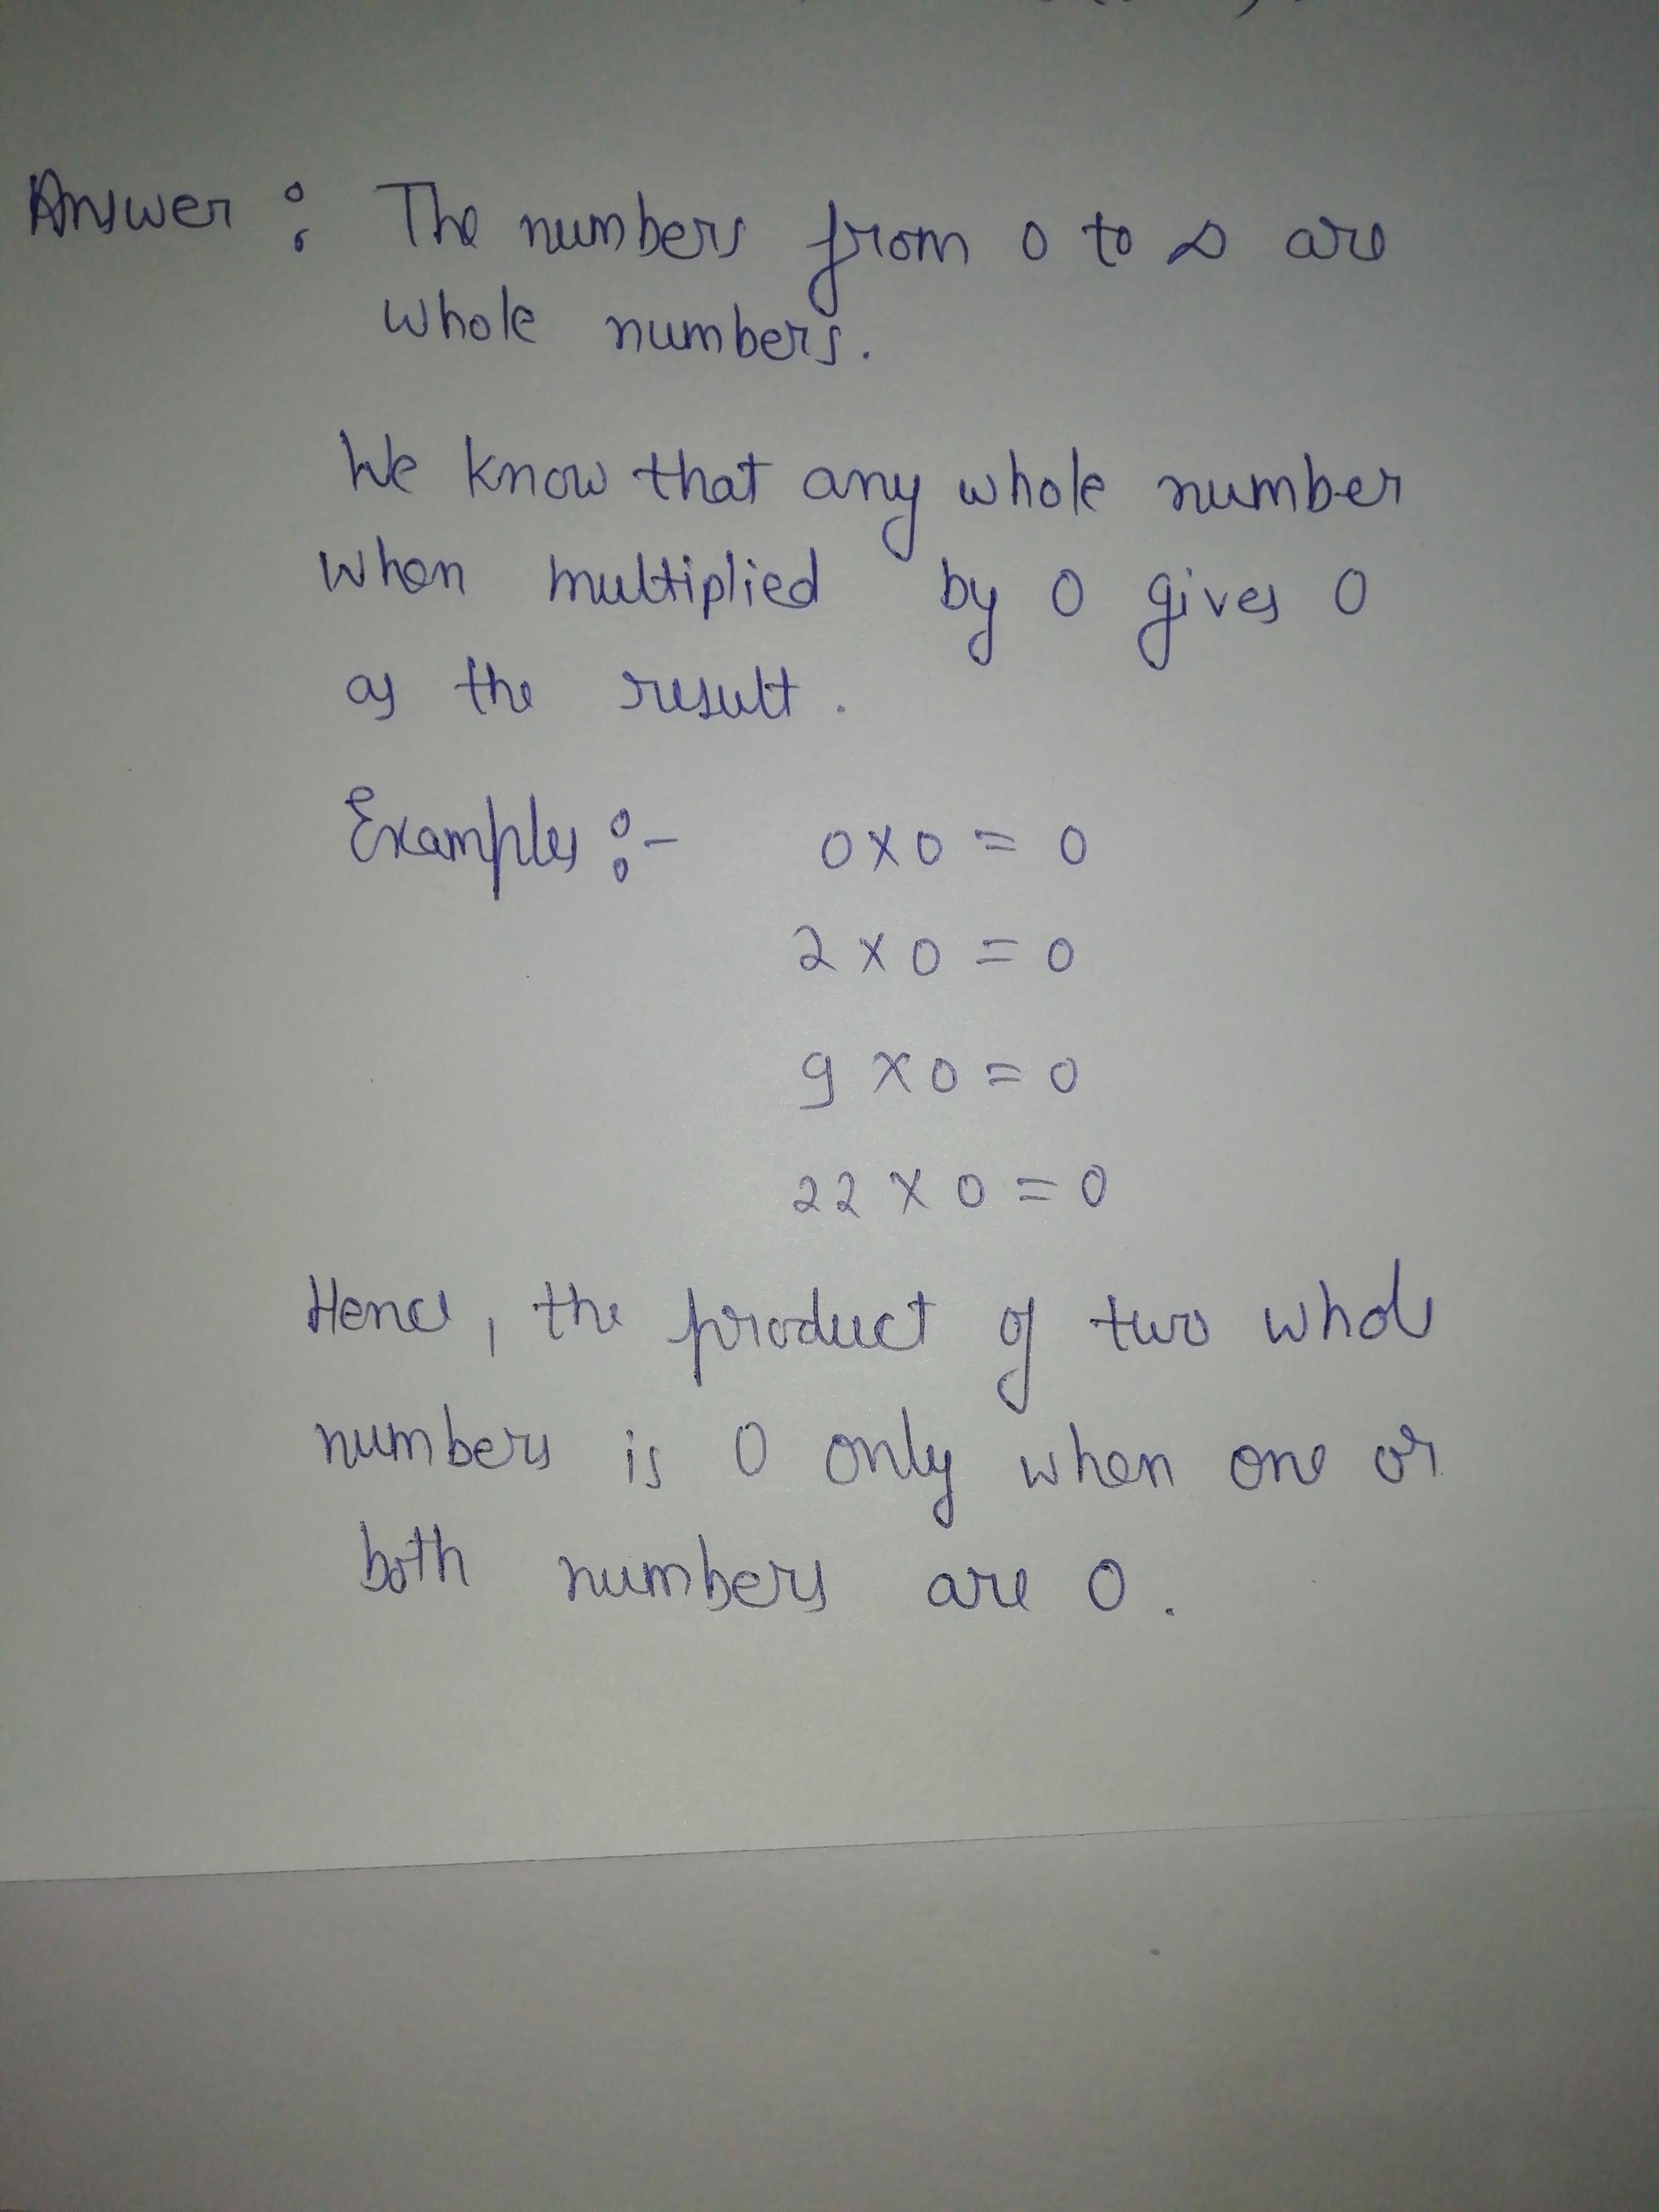 Answer : The numbers from 0 to ∞ are
whole numbers.
We know that any whole number
when multiplied by 0 gives 0
as the result.
Examples :- 0 × 0 = 0
2 × 0 = 0
9 × 0 = 0
22 × 0 = 0
Hence, the product of two whole
numbers is 0 only when one or
both numbers are 0.